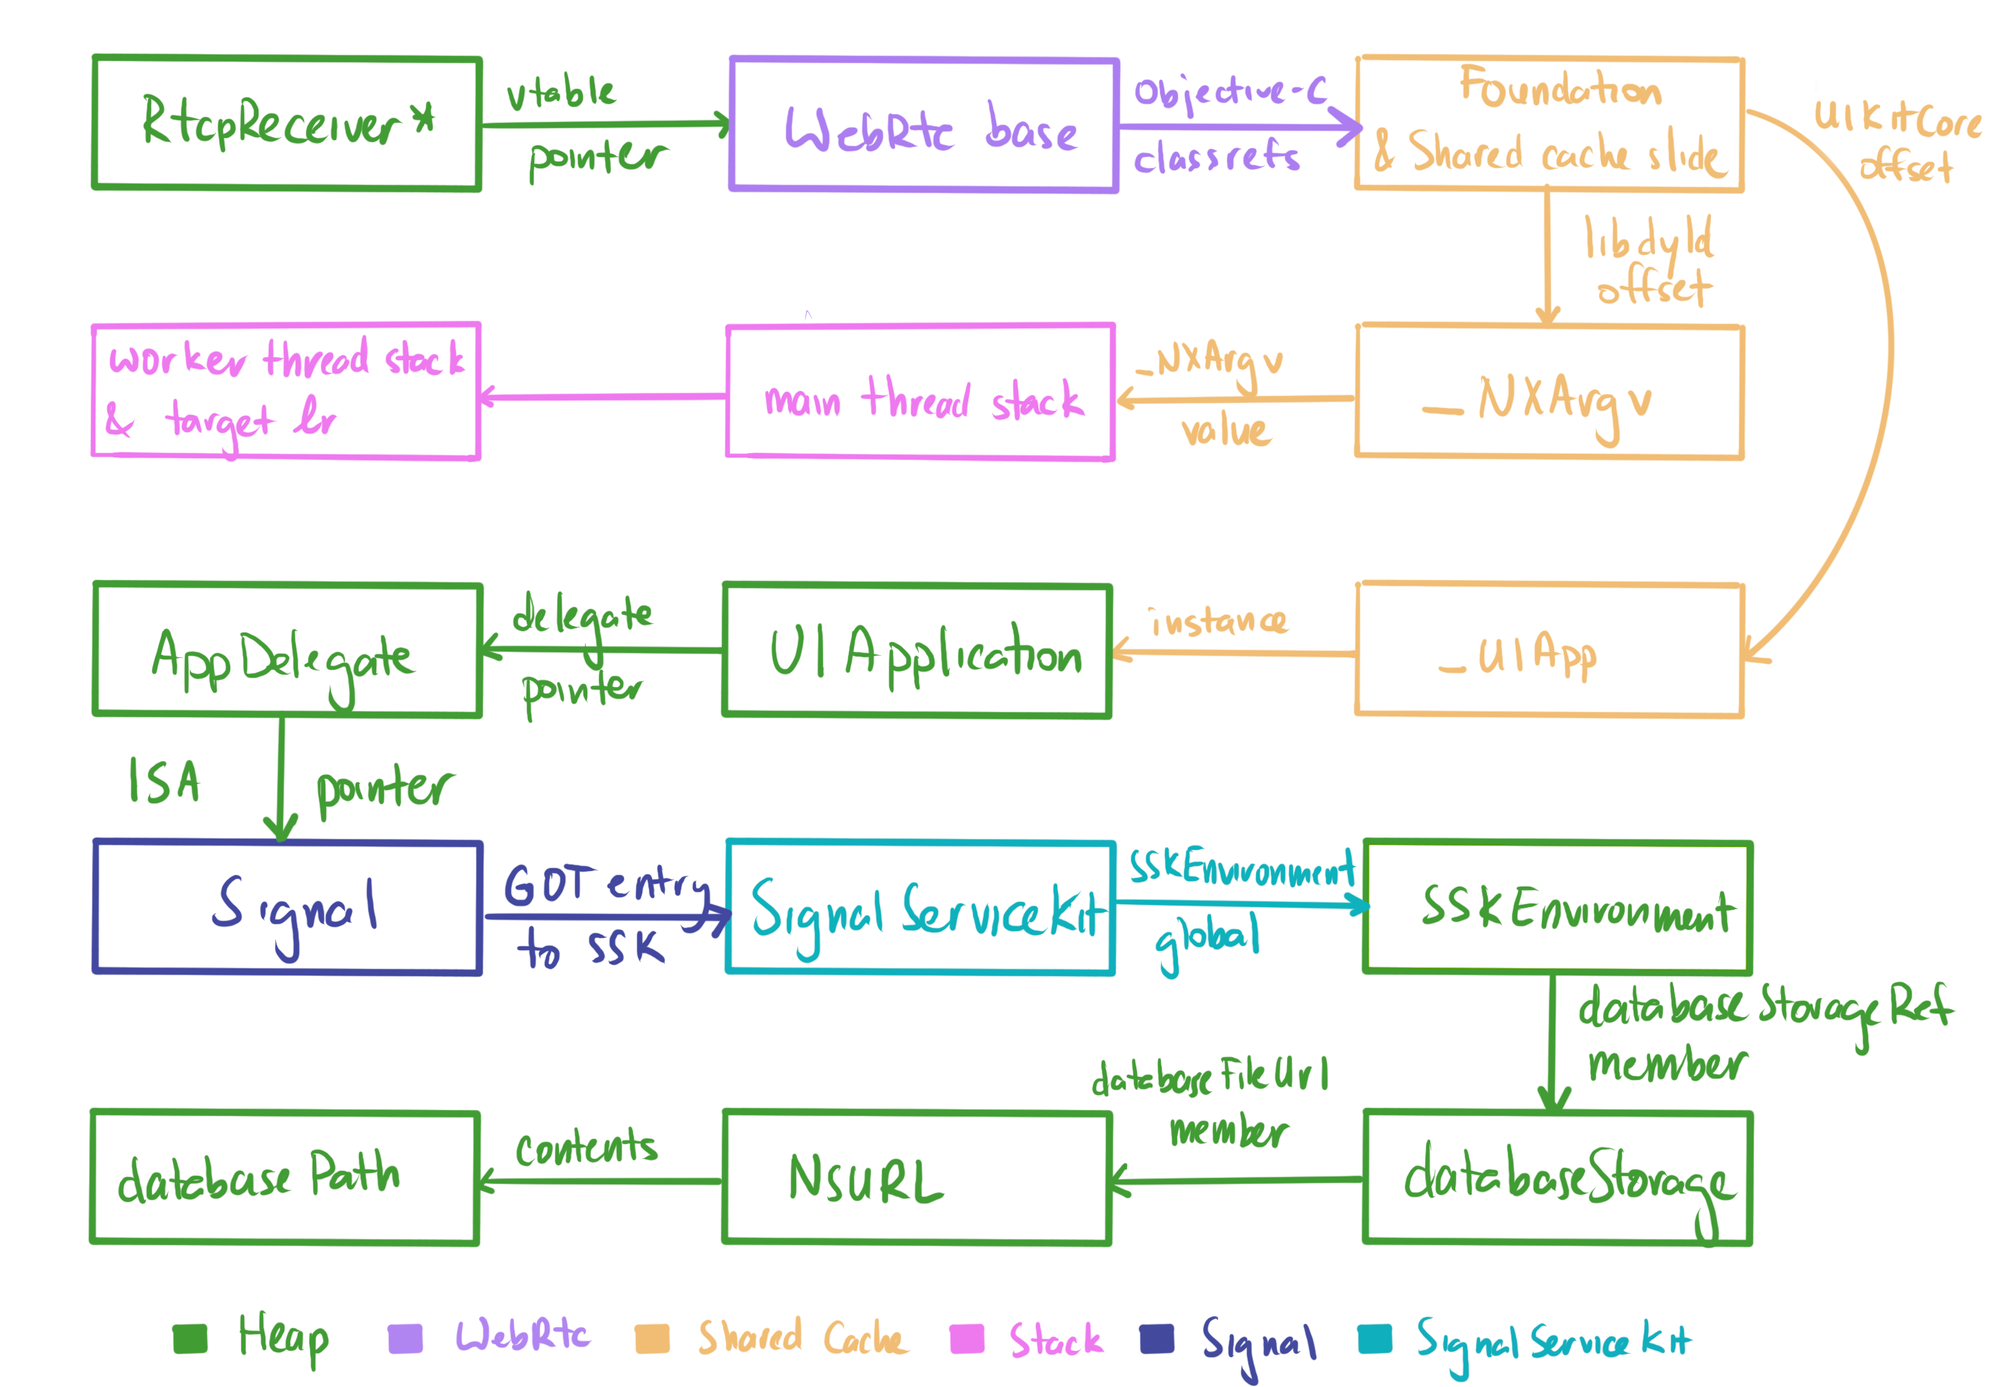 RtcpReceiver*
vtable
pointer
WebRtc base
Objective-C
classrefs
Foundation
& Shared cache slide
UIKitCore
offset
libdyld
offset
worker thread stack
& target lr
main thread stack
_NXArgv
value
_NXArgv
AppDelegate
delegate
pointer
UIApplication
instance
_UIApp
ISA pointer
Signal
GOT entry
to SSK
SignalServiceKit
SSKEnvironment
global
SSKEnvironment
databaseStorageRef
member
databasePath
contents
NSURL
databaseFileUrl
member
databaseStorage
Heap
WebRtc
Shared Cache
Stack
Signal
SignalServiceKit